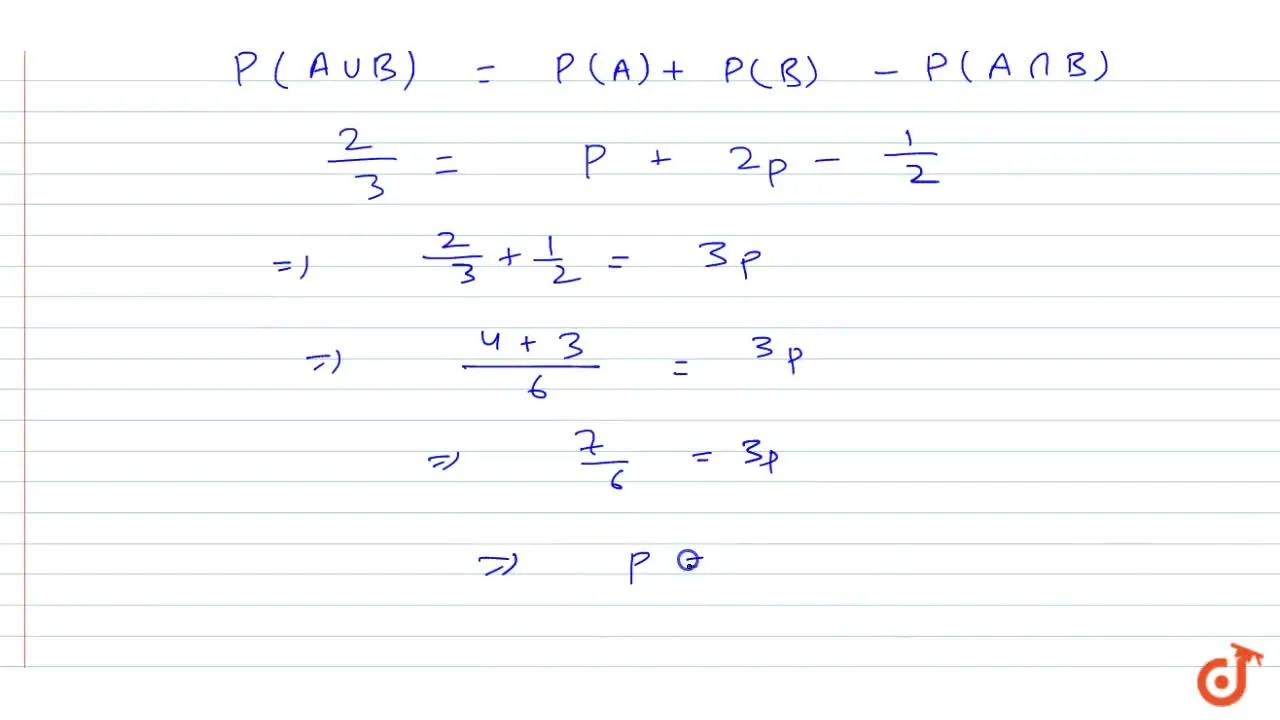 P(A∪B) = P(A) + P(B) - P(A∩B)
2/3 = p + 2p - 1/2
=) 2/3 + 1/2 = 3p
=) (4 + 3)/6 = 3p
=) 7/6 = 3p
=) p =